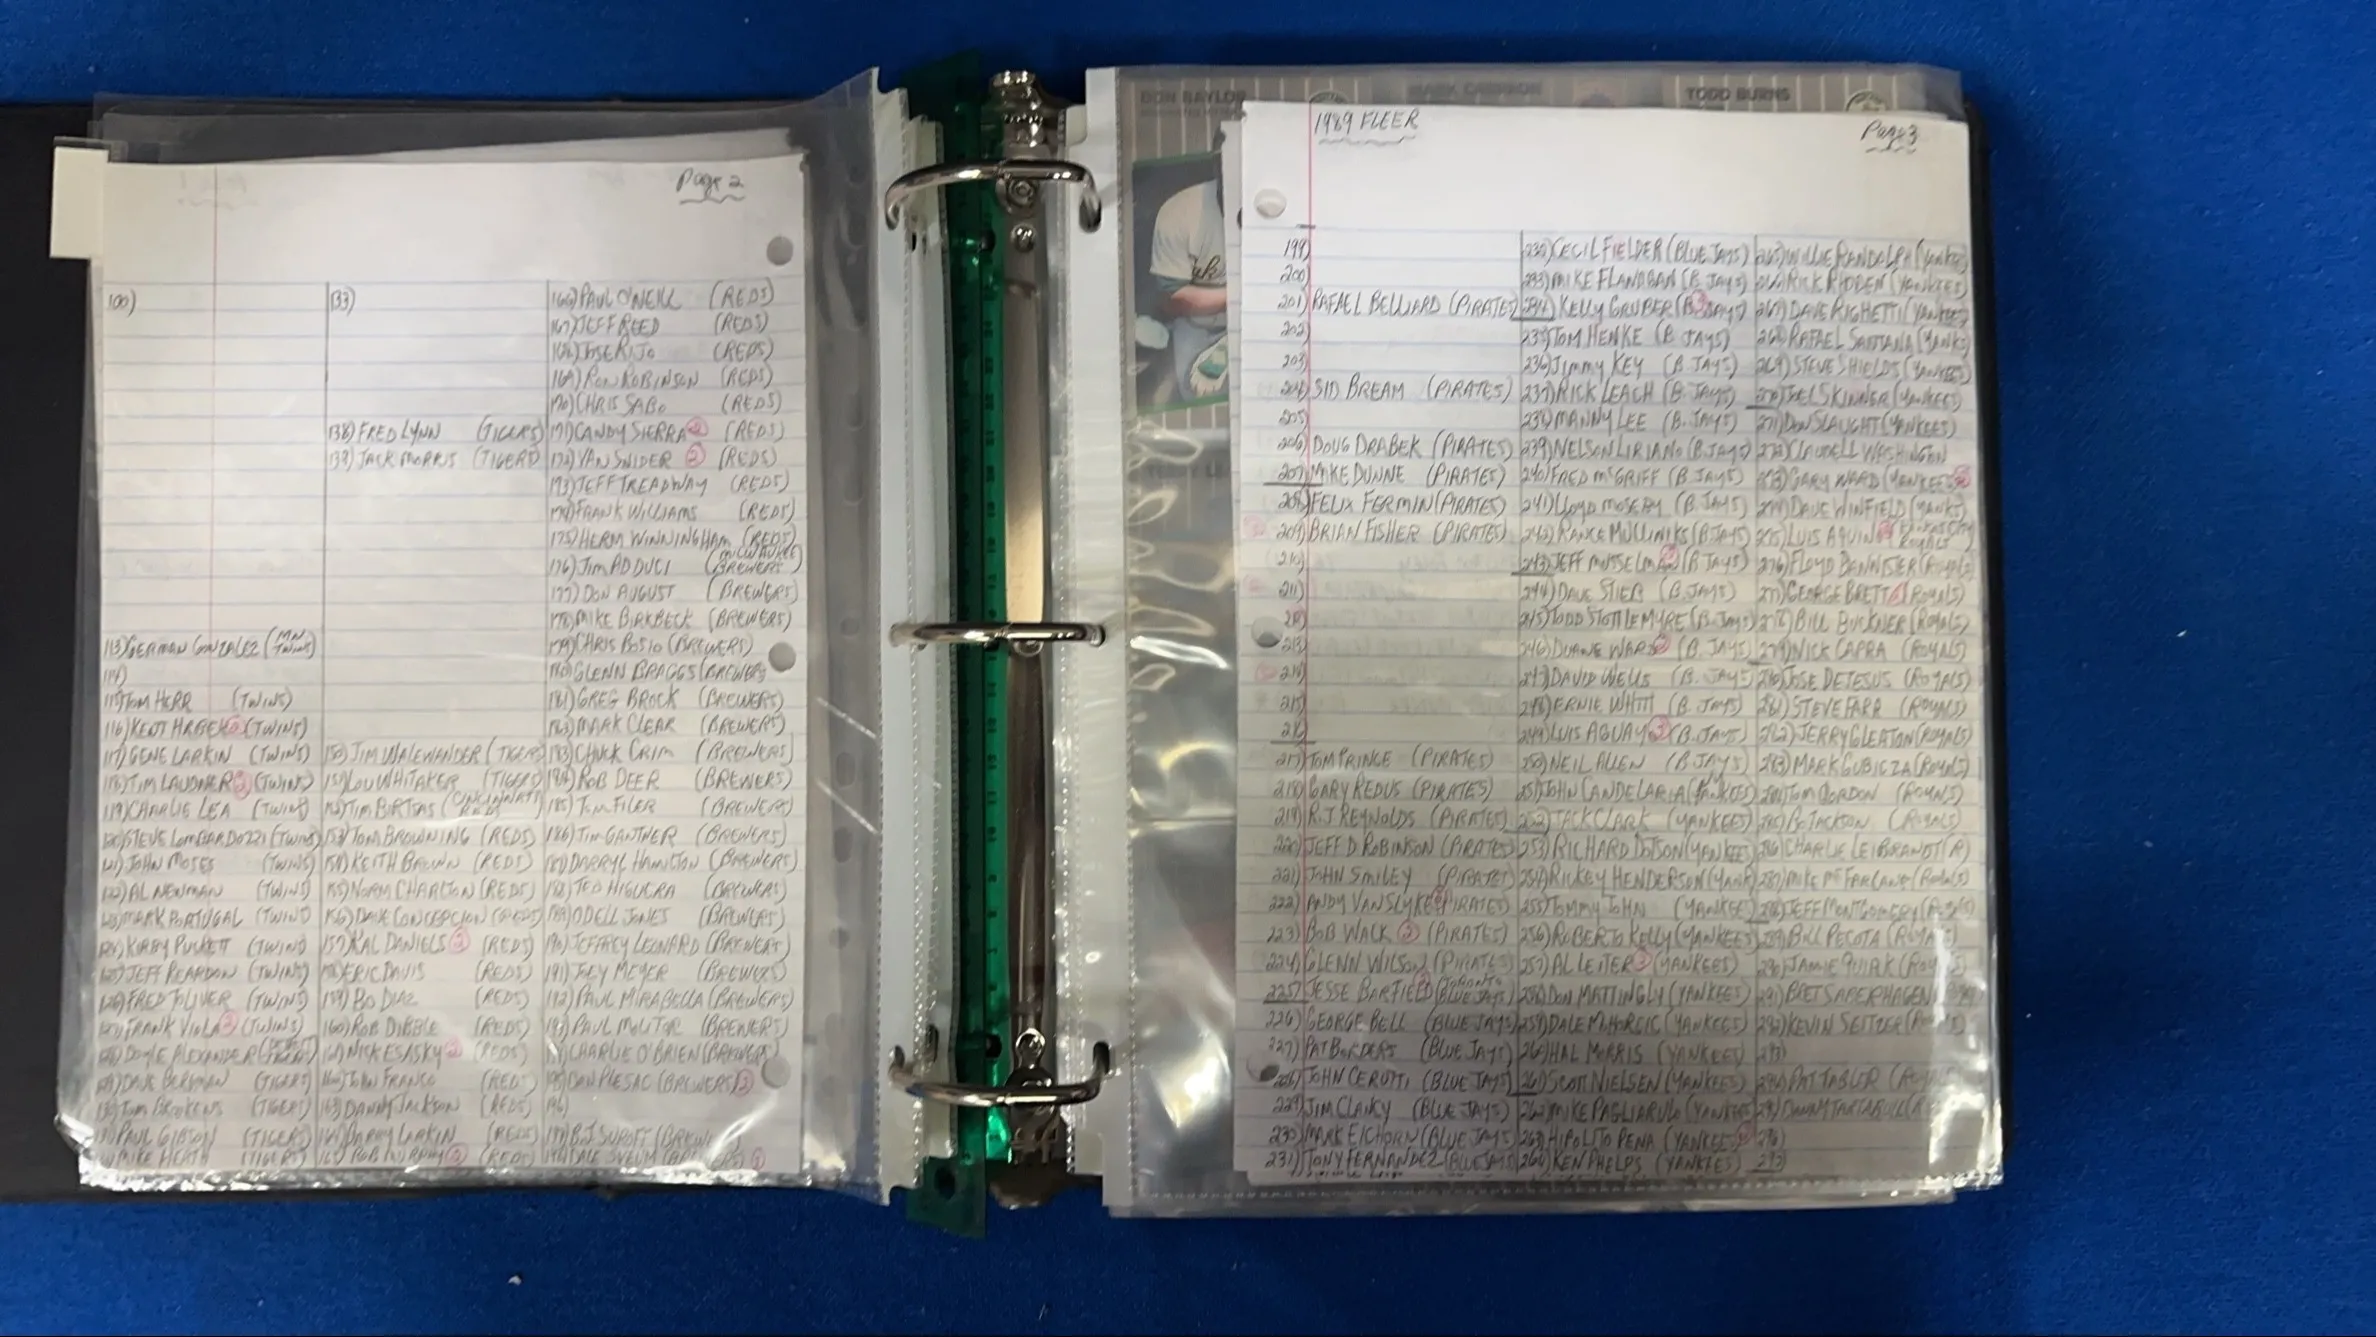 Page 2
100)
113) GERMAN GONZALEZ (MN TWINS)
114)
115) TOM HERR (TWINS)
116) KENT HRBEK 2 (TWINS)
117) GENE LARKIN (TWINS)
118) TIM LAUDNER 2 (TWINS)
119) CHARLIE LEA (TWINS)
120) STEVE LOMBARDOZZI (TWINS)
121) JOHN MOSES (TWINS)
122) AL NEWMAN (TWINS)
123) MARK PORTUGAL (TWINS)
124) KIRBY PUCKETT (TWINS)
125) JEFF REARDON (TWINS)
126) FRED TOLIVER (TWINS)
127) FRANK VIOLA 2 (TWINS)
128) DOYLE ALEXANDER
129) DAVE BERGMAN (TIGERS)
130) TOM BROOKENS (TIGERS)
131) PAUL GIBSON (TIGERS)
132) MIKE HEATH (TIGERS)
133)
138) FRED LYNN (TIGERS)
139) JACK MORRIS (TIGERS)
150) JIM WALEWANDER (TIGERS)
151) LOU WHITAKER (TIGERS)
152) TIM BIRTSAS (CINCINNATI REDS)
153) TOM BROWNING (REDS)
154) KEITH BROWN (REDS)
155) NORM CHARLTON (REDS)
156) DAVE CONCEPCION (REDS)
157) KAL DANIELS 2 (REDS)
158) ERIC DAVIS (REDS)
159) BO DIAZ (REDS)
160) ROB DIBBLE (REDS)
161) NICK ESASKY 2 (REDS)
162) JOHN FRANCO (REDS)
163) DANNY JACKSON (REDS)
164) BARRY LARKIN (REDS)
165) ROB MURPHY 2 (REDS)
166) PAUL O'NEILL (REDS)
167) JEFF REED (REDS)
168) JOSE RIJO (REDS)
169) RON ROBINSON (REDS)
170) CHRIS SABO (REDS)
171) CANDY SIERRA 2 (REDS)
172) VAN SNIDER 2 (REDS)
173) JEFF TREADWAY (REDS)
174) FRANK WILLIAMS (REDS)
175) HERM WINNINGHAM (REDS)
176) JIM ADDUCI (MILWAUKEE BREWERS)
177) DON AUGUST (BREWERS)
178) MIKE BIRKBECK (BREWERS)
179) CHRIS BOSIO (BREWERS)
180) GLENN BRAGGS (BREWERS
181) GREG BROCK (BREWERS)
182) MARK CLEAR (BREWERS)
183) CHUCK CRIM (BREWERS)
184) ROB DEER (BREWERS)
185) TOM FILER (BREWERS)
186) JIM GANTNER (BREWERS)
187) DARRYL HAMILTON (BREWERS)
188) TED HIGUERA (BREWERS)
189) ODELL JONES (BREWERS)
190) JEFFREY LEONARD (BREWERS)
191) JOEY MEYER (BREWERS)
192) PAUL MIRABELLA (BREWERS)
193) PAUL MOLITOR (BREWERS)
194) CHARLIE O'BRIEN (BREWERS)
195) DAN PLESAC (BREWERS) 2
196)
197) B.J. SURHOFF (BREW
198) DALE SVEUM
1989 FLEER
Page 3
199)
200)
201) RAFAEL BELLIARD (PIRATES)
202)
203)
204) SID BREAM (PIRATES)
205)
206) DOUG DRABEK (PIRATES)
207) MIKE DUNNE (PIRATES)
208) FELIX FERMIN (PIRATES)
209) BRIAN FISHER (PIRATES)
210)
211)
212)
213)
214)
215)
216)
217) TOM PRINCE (PIRATES)
218) GARY REDUS (PIRATES)
219) R.J REYNOLDS (PIRATES)
220) JEFF D ROBINSON (PIRATES
221) JOHN SMILEY (PIRATES)
222) ANDY VAN SLYKE (PIRATES)
223) BOB WALK 2 (PIRATES)
224) GLENN WILSON (PIRATES)
225) JESSE BARFIELD (TORONTO BLUE JAYS)
226) GEORGE BELL (BLUE JAYS)
227) PAT BORDERS (BLUE JAYS)
228) JOHN CERUTTI (BLUE JAYS)
229) JIM CLANCY (BLUE JAYS)
230) MARK EICHORN (BLUE JAYS)
231) TONY FERNANDEZ (BLUE JAYS
232) CECIL FIELDER (BLUE JAYS)
233) MIKE FLANAGAN (B. JAYS)
234) KELLY GRUBER (B. JAYS)
235) TOM HENKE (B. JAYS)
236) JIMMY KEY (B. JAYS)
237) RICK LEACH (B. JAYS)
238) MANNY LEE (B. JAYS)
239) NELSON LIRIANO (B. JAYS)
240) FRED McGRIFF (B. JAYS)
241) LLOYD MOSEBY (B. JAYS)
242) RANCE MULLINIKS (B JAYS)
243) JEFF MUSSELMAN (B JAYS)
244) DAVE STIEB (B. JAYS)
245) TODD STOTTLEMYRE (B. JAYS)
246) DUANE WARD 2 (B. JAYS)
247) DAVID WELLS (B. JAYS)
248) ERNIE WHITT (B. JAYS)
249) LUIS AGUAYO (B. JAYS)
250) NEIL ALLEN (B JAYS)
251) JOHN CANDELARIA (YANKEES)
252) JACK CLARK (YANKEES)
253) RICHARD DOTSON (YANKEES)
254) RICKEY HENDERSON (YANK)
255) TOMMY JOHN (YANKEES)
256) ROBERTO KELLY (YANKEES)
257) AL LEITER 2 (YANKEES)
258) DON MATTINGLY (YANKEES)
259) DALE MOHORCIC (YANKEES)
260) HAL MORRIS (YANKEES)
261) SCOTT NIELSEN (YANKEES)
262) MIKE PAGLIARULO (YANKEES)
263) HIPOLITO PENA (YANKEES)
264) KEN PHELPS (YANKEES)
265) WILLIE RANDOLPH (YANKEE)
266) RICK RHODEN (YANKEES)
267) DAVE RIGHETTI (YANKEES)
268) RAFAEL SANTANA (YANKS)
269) STEVE SHIELDS (YANKEES)
270) JOEL SKINNER (YANKEES)
271) DON SLAUGHT (YANKEES)
272) CLAUDELL WASHINGTON
273) GARY WARD (YANKEES)
274) DAVE WINFIELD (YANKS)
275) LUIS AQUINO KANSAS CITY ROYALS
276) FLOYD BANNISTER (ROYALS)
277) GEORGE BRETT (ROYALS)
278) BILL BUCKNER (ROYALS)
279) NICK CAPRA (ROYALS)
280) JOSE DEJESUS (ROYALS)
281) STEVE FARR (ROYALS)
282) JERRY GLEATON (ROYALS)
283) MARK GUBICZA (ROYALS)
284) TOM GORDON (ROYALS)
285) BO JACKSON (ROYALS)
286) CHARLIE LEIBRANDT (R)
287) MIKE McFARLANE (ROYALS)
288) JEFF MONTGOMERY (ROYALS)
289) BILL PECOTA (ROYALS)
290) JAMIE QUIRK (ROYALS)
291) BRET SABERHAGEN
292) KEVIN SEITZER
293)
294) PAT TABLER
295) DANNY TARTABULL
296)
297)
DON BAYLOR
TODD BURNS